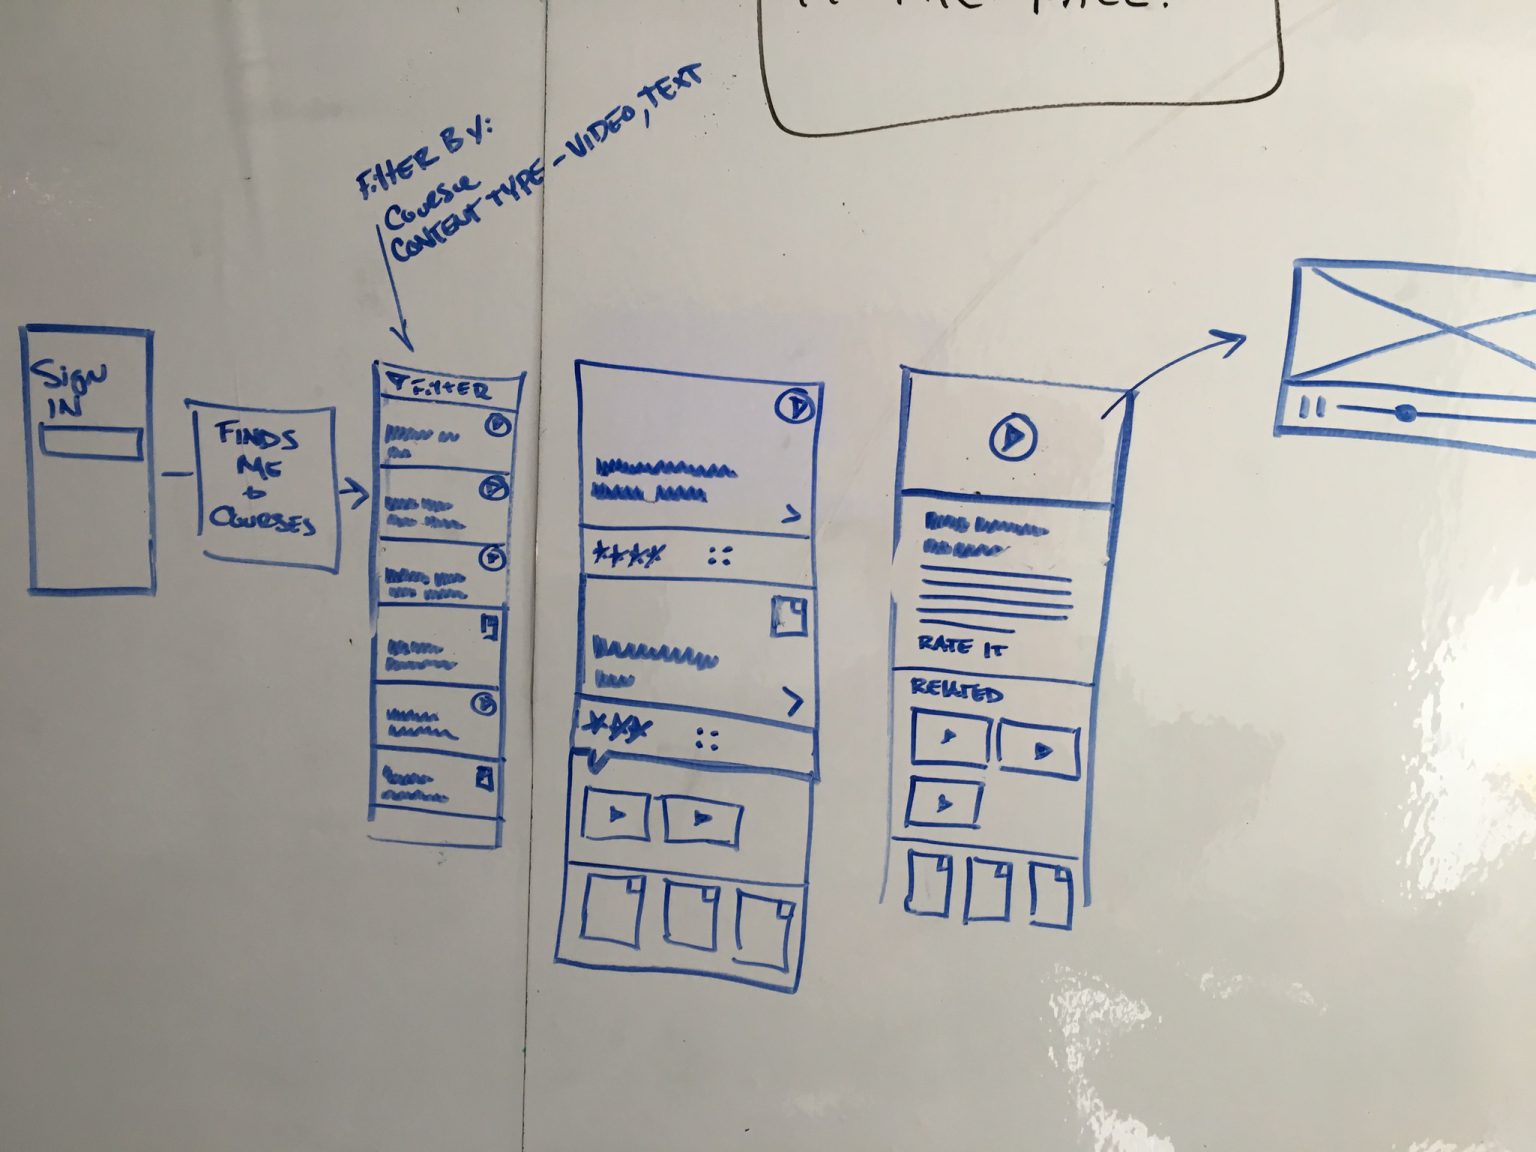 Filter By:
Course
Content Type - Video, Text
Sign
In
Finds
Me
+
Courses
Filter
Rate It
Related